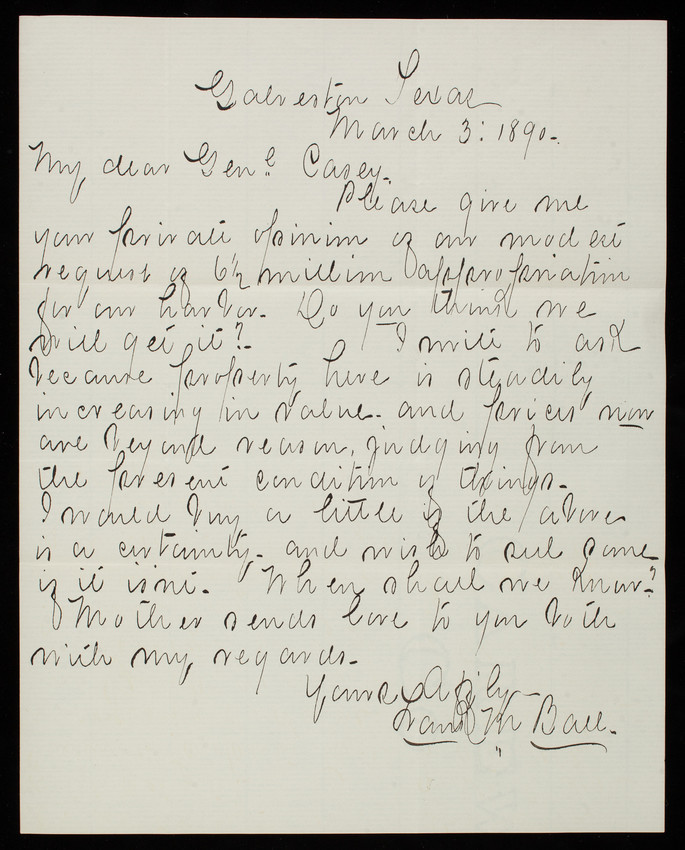 Galveston Texas
March 3: 1890-
My dear Gen.l Casey-
Please give me
your private opinion of our modest
request of 6½ million appropriation
for our harbor- Do you think we
will get it?- I write to ask
because property here is steadily
increasing in value- and prices now
are beyond reason, judging from
the present condition of things-
I would buy a little if the above
is a certainty- and wish to sell some
if it isn't- When shall we know-?
Mother sends love to you both
with my regards-
Yours
Frank M Ball-